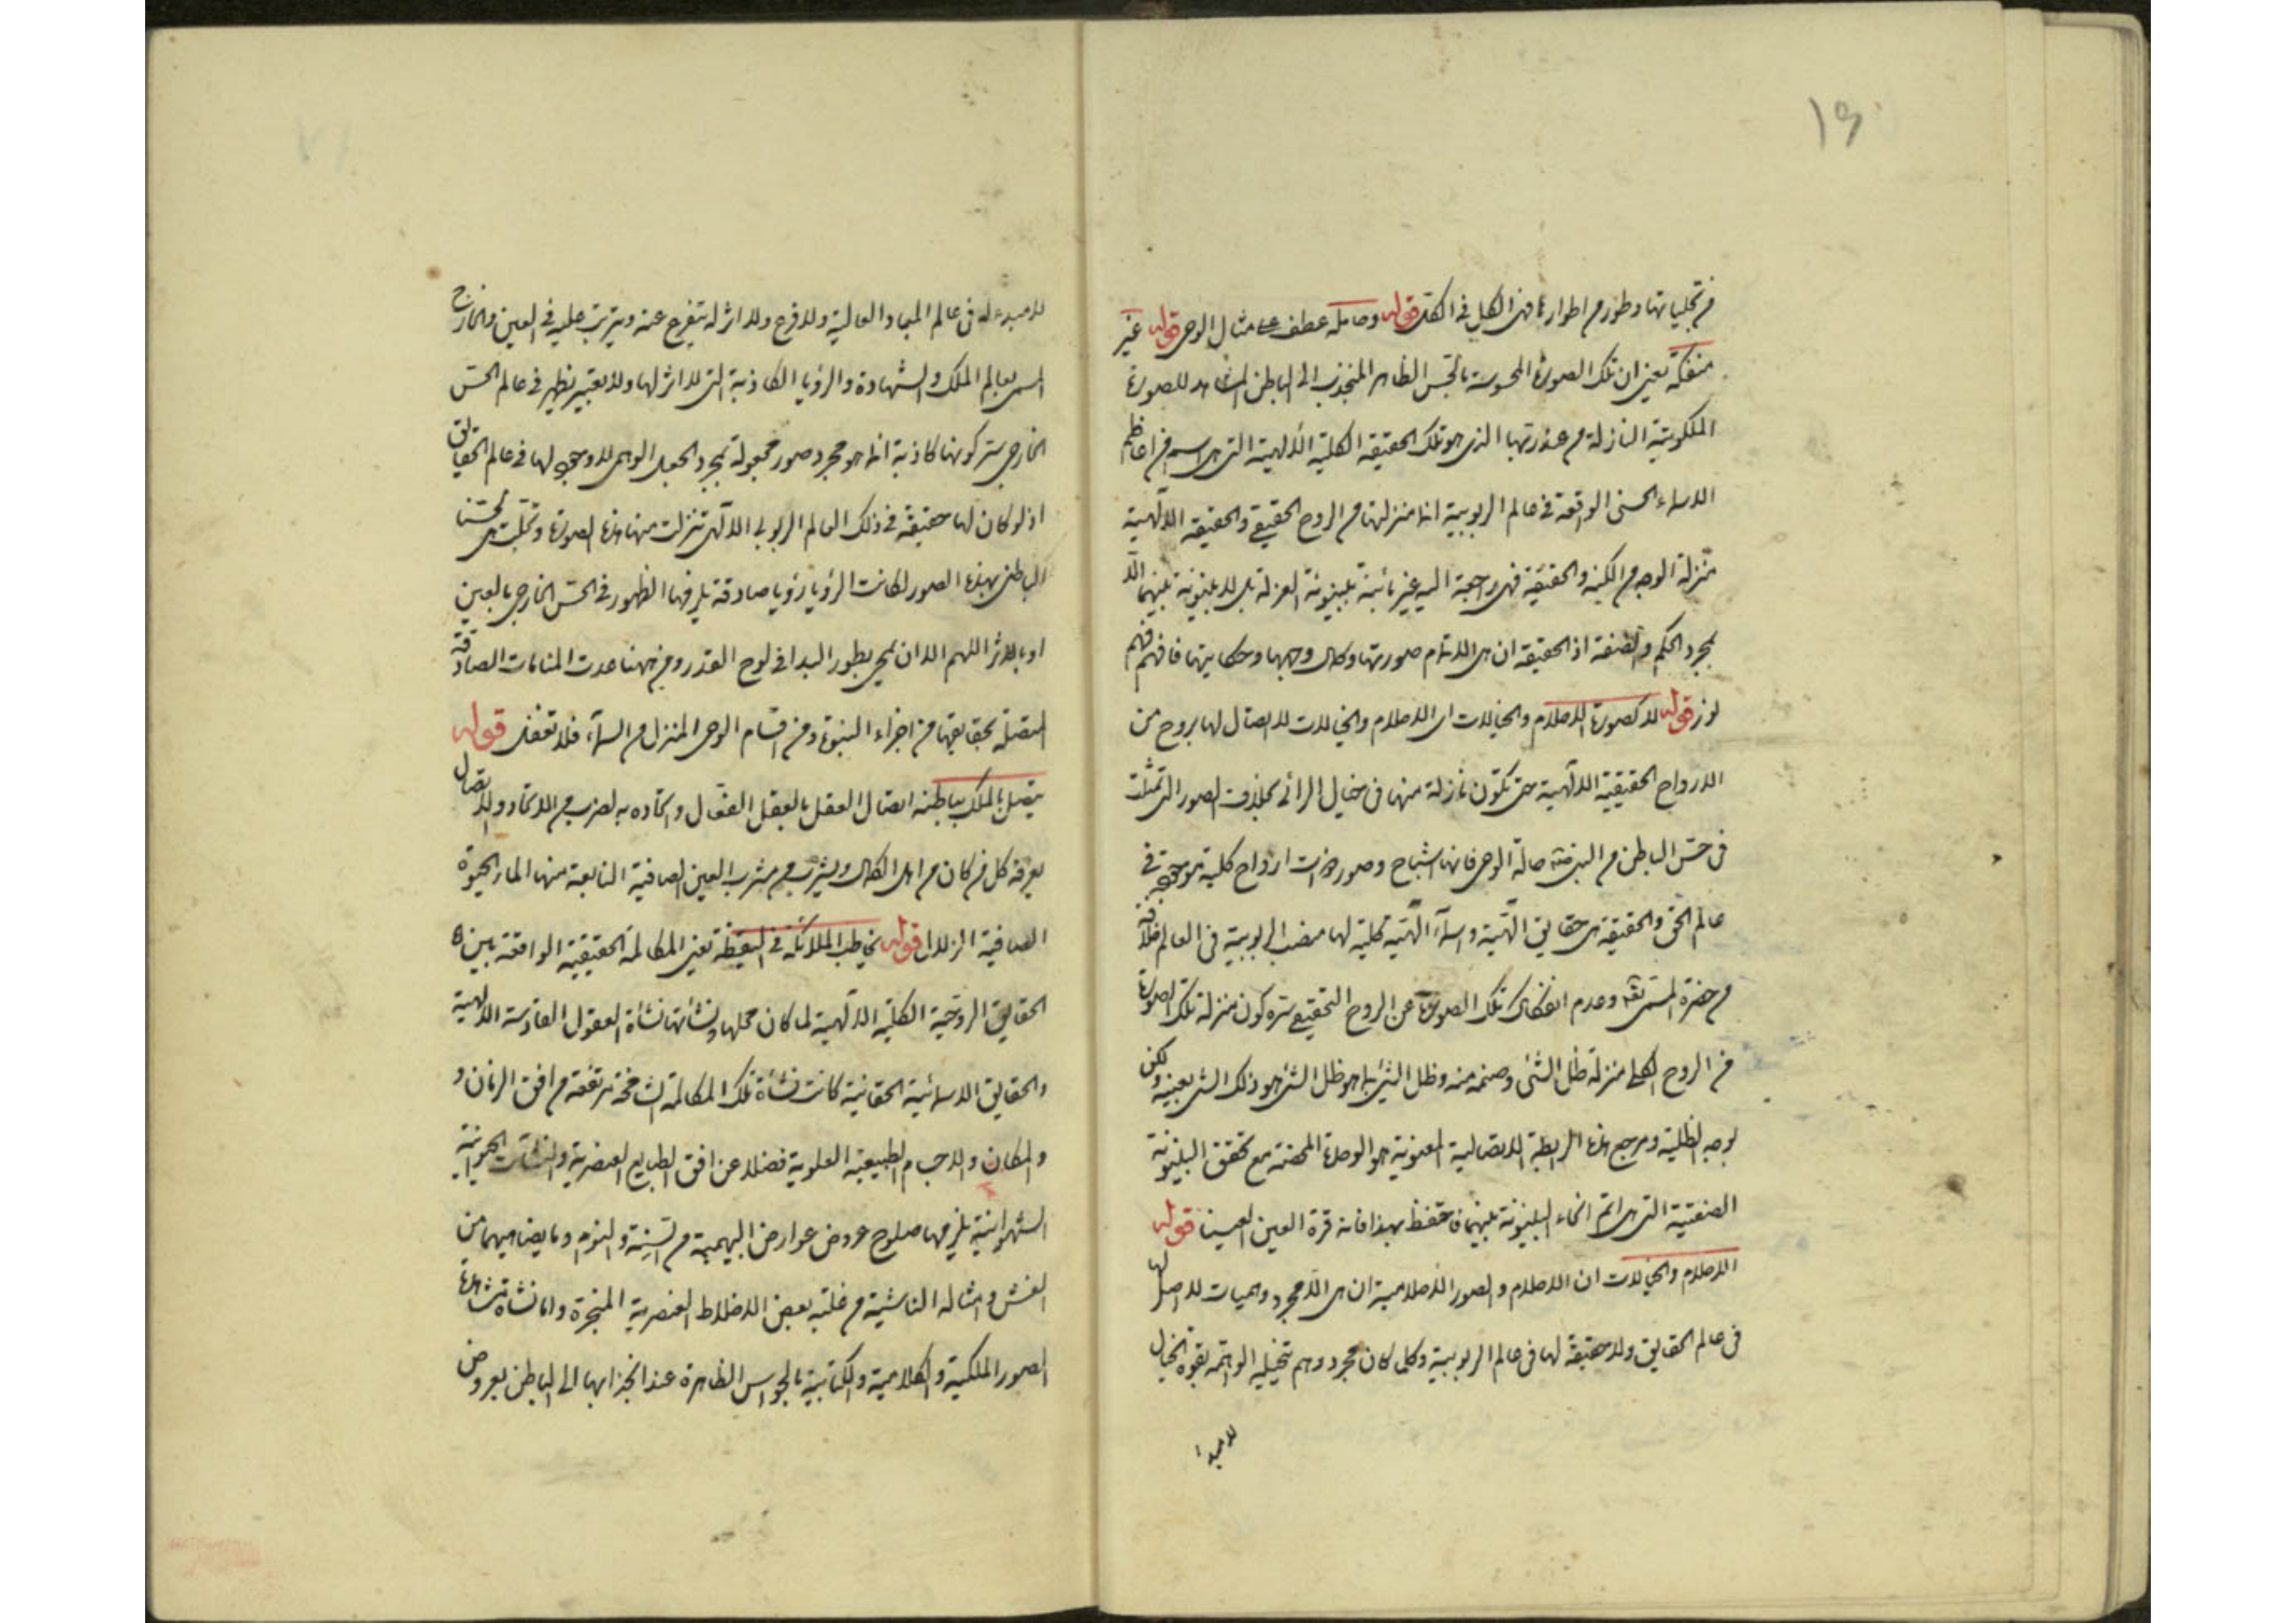 ١٥
من تجلياتها وطور من اطوارها فهي الكل في الكل قوله وحامله عطف على مثال الوحي قوله غير
منفكة يعني ان تلك الصورة المحسوسة بالحس الظاهر المنجذب الى الباطن المشاهد للصورة
الملكوتية النازلة من عند ربها الذي هو تلك الحقيقة الكلية الالهية التي هي اسم من اعاظم
الاسماء الحسنى الواقعة في عالم الربوبية انما منزلتها من الروح الحقيقي والحقيقة الالهية
منزلة الوجه من الكنه والحقيقة فهي راجعة اليه غير بائنة بينونة العزلة بل لا بينونة بينهما الا
بمجرد الحكم والصفة اذ الحقيقة ان هي الا تمام صورتها وكمال وجهها وحكايتها فافهم فهم
نور قوله لا كصورة الاحلام والخيالات اي الاحلام والخيالات لا اتصال لها بروح من
الارواح الحقيقية الالهية حتى تكون نازلة منها في خيال الرائي بخلاف الصور التي تمثلت
في حس الباطن من النبي حالة الوحي فانها اشباح وصور ذوات ارواح كلية موجودة في
عالم الحق والحقيقة هي حقايق الهية واسماء الهية كلية لها منصب الربوبية في العالم خلافة
من حضرة المسمى تعالى وعدم انفكاك تلك الصورة عن الروح الحقيقي سره كون منزلة تلك الصورة
من الروح الكلي منزلة ظل الشئ وصنمه منه وظل الشئ بما هو ظل الشئ هو ذلك الشئ بعينه ولكن
بوجه الظلية ومرجع هذه الرابطة الاتصالية المعنوية هو الوحدة المحضة مع تحقق البينونة
الصفتية التي هي اتم انحاء البينونة بينهما فاحتفظ بهذا فانه قرة العين لعيننا قوله
الاحلام والخيالات ان الاحلام والصور الاحلامية ان هي الا مجرد وهميات لا اصل لها
في عالم الحقايق ولا حقيقة لها في عالم الربوبية وكل ما كان مجرد وهم تخيليه الواهمة بقوة الخيال
لا مبدا
لا مبدء له في عالم المبادو العالية ولا فرع ولا اثر له يتفرع عنه ويترتب عليه في العين والخارج
المسمى بعالم الملك والشهادة والرؤيا الكاذبة التي لا اثر لها ولا تعبير يظهر في عالم الحس
الخارجي سر كونها كاذبة انما هو مجرد صور مجعولة بمجرد الجعل الوهمي لا وجود لها في عالم الحقايق
اذ لو كان لها حقيقة في ذلك العالم الربوبي الالهي تنزلت منها هذه الصورة وتجلت هي لحسنا
الباطن بهذه الصور لكانت الرؤيا رؤيا صادقة يلزمها الظهور في الحس الخارجي بالعين
او بالاثر اللهم الا ان يمحى بطور البدا في لوح القدر ومن ههنا عدت المنامات الصادقة
المتصلة بحقايقها من اجزاء النبوة ومن اقسام الوحي المنزل من السماء فلا تغفل قوله
يتصل بالملك بباطنه اتصال العقل بالعقل الفعال واتحاده به لضرب من الاتحاد والاتصال
يعرفه كل من كان من اهل الكمال ويشرب من مشرب العين الصافية النابعة منها الماء الحيوة
الصافية الزلال قوله يخاطب الملائكة في اليقظة يعني المكالمة الحقيقية الواقعة بين
الحقايق الروحية الكلية الالهية لما كان محلها ونشأتها نشأة العقول القادسة الالهية
والحقايق الاسمائية الحقانية كانت نشأة تلك المكالمة الشامخة مرتفعة من افق الزمان و
والمكان والاجسام الطبيعية العلوية فضلا عن افق الطبايع العنصرية والنشآت الحيوانية
الشهوانية يلزمها صلوح عروض عوارض البهيمية من السنة والنوم وما يضاهيهما من
الغش وامثاله الناشية من غلبة بعض الاخلاط العنصرية المتبخرة واما نشأة مشاهدة
الصور الملكية والكلامية والكتابية بالحواس الظاهرة عند انجذابها الى الباطن بعروض